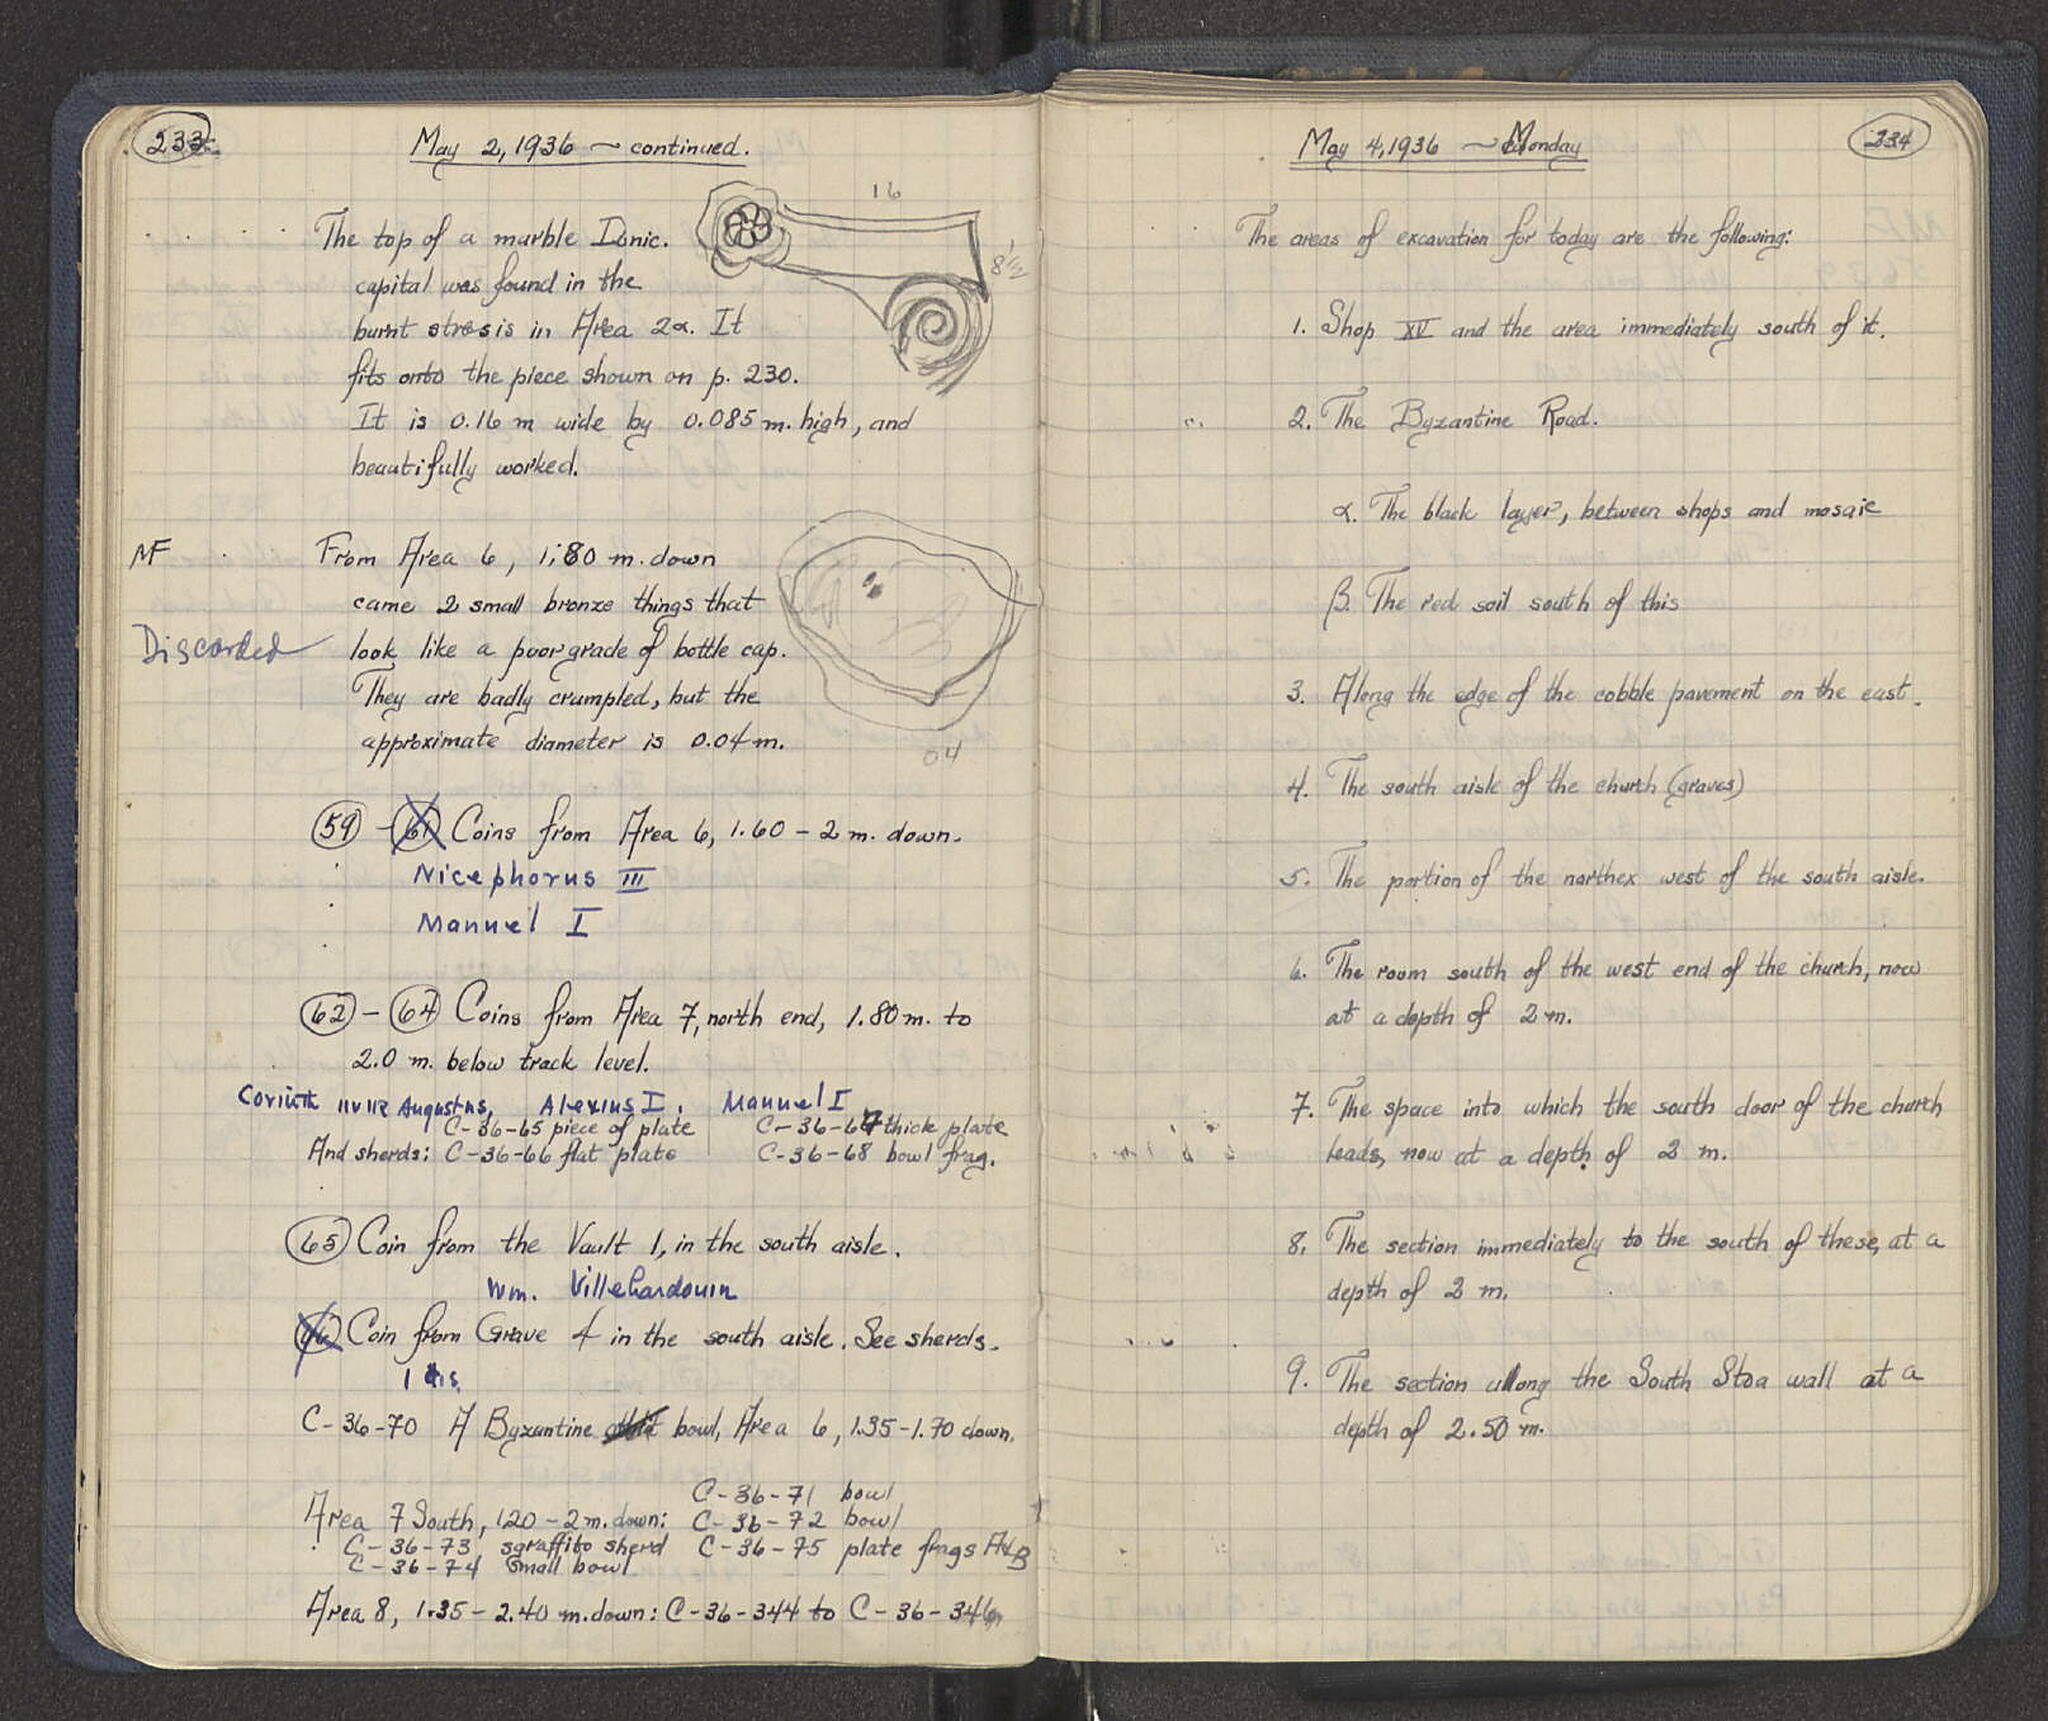 233
May 2, 1936 ~ continued.
16
8½
The top of a marble Ionic.
capital was found in the
burnt strosis in Area 2α. It
fits onto the piece shown on p. 230.
It is 0.16 m wide by 0.085 m. high, and
beautifully worked.
MF
From Area 6, 1.80 m. down
came 2 small bronze things that
Discarded
look like a poor grade of bottle cap.
They are badly crumpled, but the
approximate diameter is 0.04 m.
04
59 - 61 Coins from Area 6, 1.60 - 2 m. down.
Nicephorus III
Manuel I
62 - 64 Coins from Area 7, north end, 1.80 m. to
2.0 m. below track level.
Corinth IIVIR Augustus, Alexius I. Manuel I
C-36-65 piece of plate C-36-67 thick plate
And sherds: C-36-66 flat plate C-36-68 bowl frag.
65 Coin from the Vault 1, in the south aisle.
Wm. Villehardouin
66 Coin from Grave 4 in the south aisle. See sherds.
1 dis.
C-36-70 A Byzantine bowl, Area 6, 1.35-1.70 down.
C-36-71 bowl
Area 7 South, 120-2 m. down: C-36-72 bowl
C-36-73 sgraffito sherd C-36-75 plate frags A+B
C-36-74 Small bowl
Area 8, 1.35-2.40 m. down: C-36-344 to C-36-346
234
May 4, 1936 ~ Monday
The areas of excavation for today are the following:
1. Shop XV and the area immediately south of it.
2. The Byzantine Road.
α. The black layer, between shops and mosaic
β. The red soil south of this
3. Along the edge of the cobble pavement on the east.
4. The south aisle of the church (graves)
5. The portion of the narthex west of the south aisle.
6. The room south of the west end of the church, now
at a depth of 2 m.
7. The space into which the south door of the church
leads, now at a depth of 2 m.
8. The section immediately to the south of these, at a
depth of 2 m.
9. The section along the South Stoa wall at a
depth of 2.50 m.